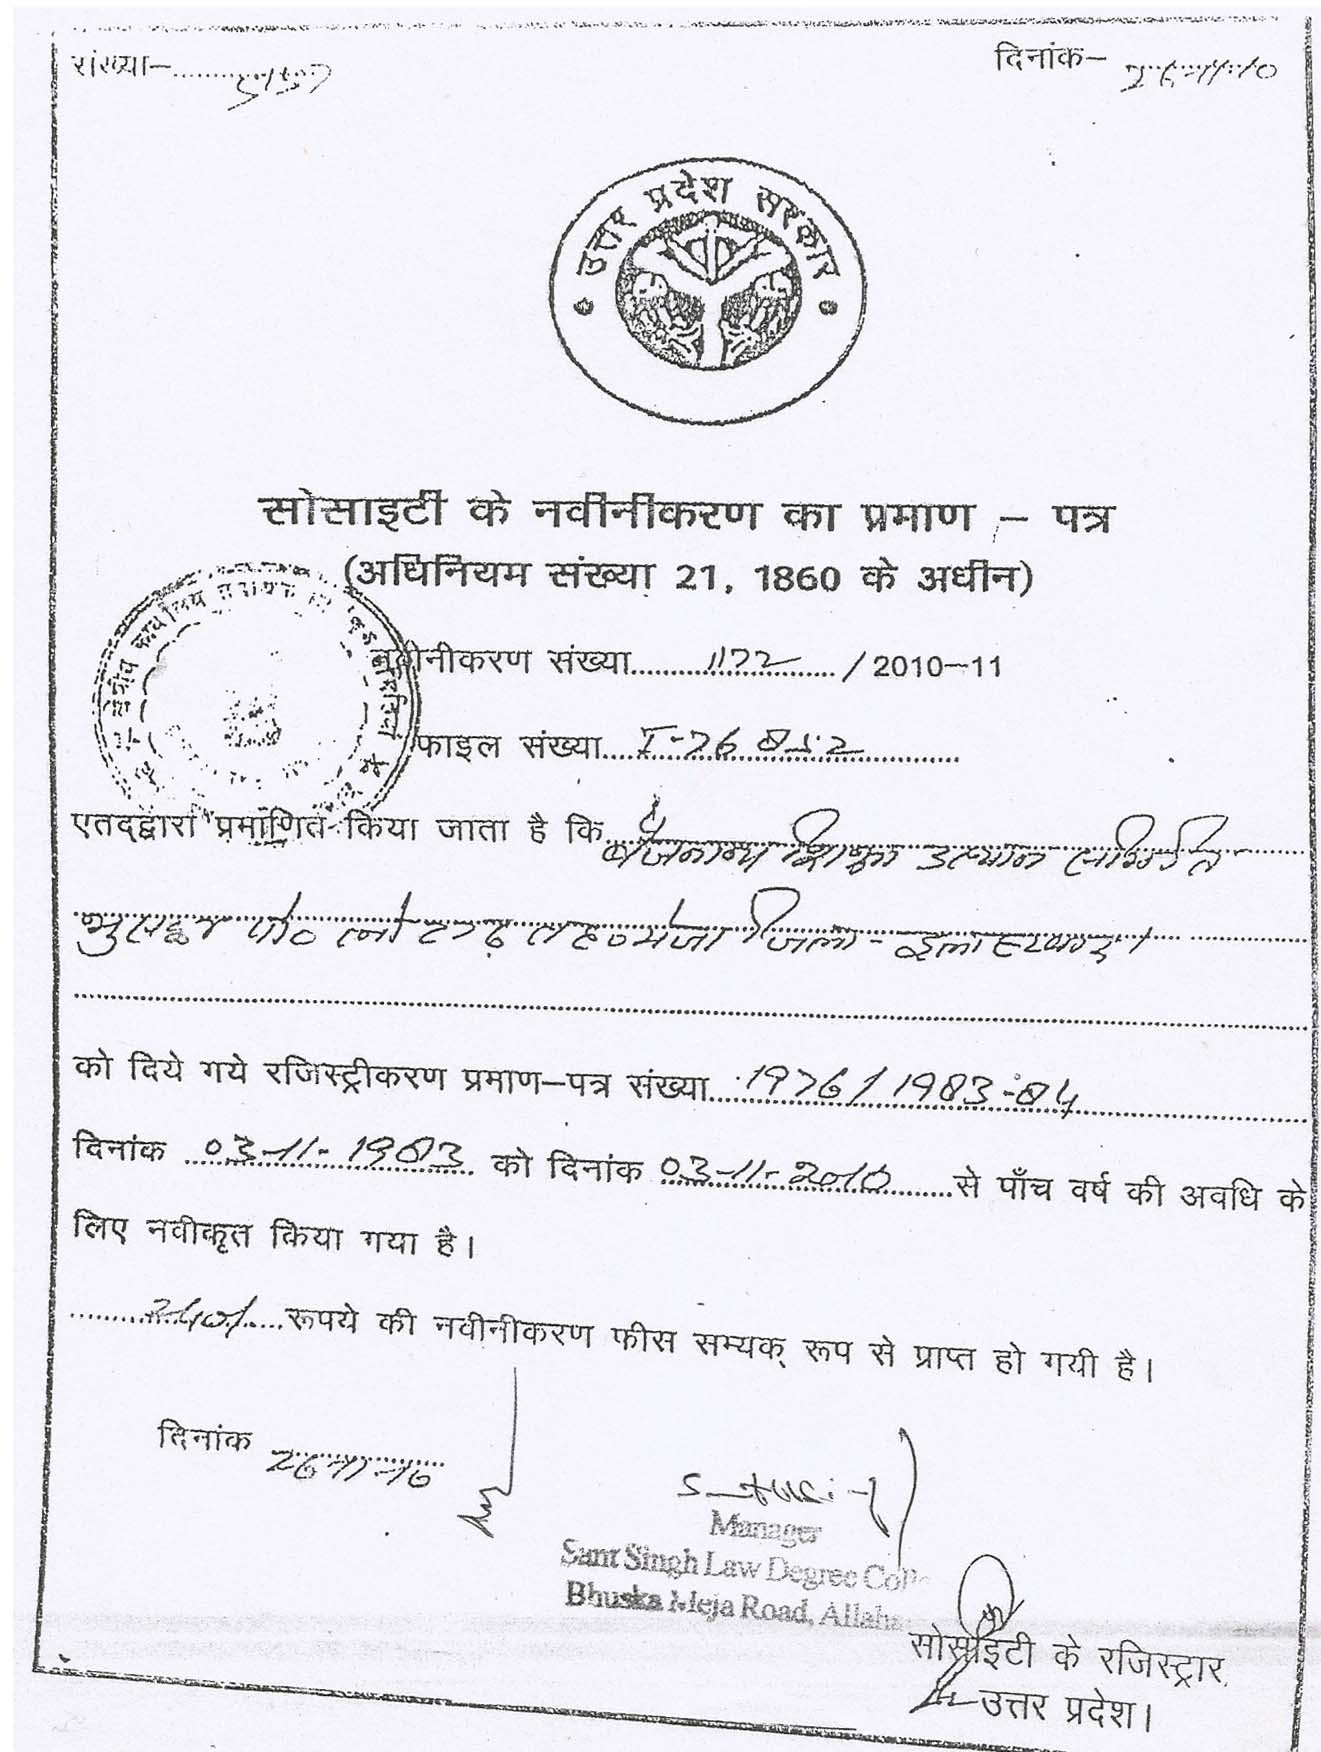 संख्या–
दिनांक– 26-11-10
उत्तर प्रदेश सरकार
सोसाइटी के नवीनीकरण का प्रमाण – पत्र
(अधिनियम संख्या 21, 1860 के अधीन)
नवीनीकरण संख्या 1122 / 2010–11
फाइल संख्या I-26852
एतद्द्वारा प्रमाणित किया जाता है कि शिक्षा उत्थान समिति
पो० तह० मेजा जिला - इलाहाबाद।
को दिये गये रजिस्ट्रीकरण प्रमाण–पत्र संख्या 1976/1983-84
दिनांक 03-11-1983 को दिनांक 03-11-2010 से पाँच वर्ष की अवधि के
लिए नवीकृत किया गया है।
240/ रूपये की नवीनीकरण फीस सम्यक् रूप से प्राप्त हो गयी है।
दिनांक 26-11-10
Manager
Sant Singh Law Degree Coll
Bhuska Meja Road, Allaha
सोसाइटी के रजिस्ट्रार
उत्तर प्रदेश।